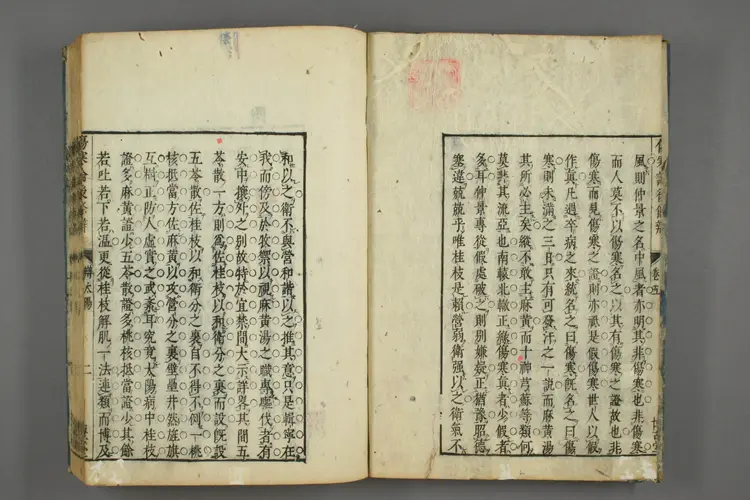 風則仲景之名中風者亦明其非傷寒也非傷寒
而人莫不以傷寒名之以其有傷寒之證故也非
傷寒而見傷寒之證則亦祇是假傷寒世人以假
作真凡遇等病之來統名之曰傷寒旣名之曰傷
寒則未滿之三日只有可發汗之一說而麻黃湯
其所必主矣縱不敢主麻黃而十神芎蘇等類何
莫非其流亞也南轅北轍正緣傷寒眞者少假者
多耳仲景專從假處破之則別嫌疑正猶豫昭德
塞違兢兢乎唯桂枝是賴營弱衛強以之衛氣不
和以之衛不與營和諧以之推其意只是輯寧在
我而傍及於牧禦以視麻黃湯之職專驅伐者有
安申攘處之別故特於宜禁間大示詳畧其間五
苓散一方則爲佐桂枝以和衛分之裏而設旣設
五苓散佐桂枝以和衛分之裏自不得不倂一桃
核抵當方佐麻黃以攻營分之裏壁壘井然旌旗
互辯正防人虛實之或紊耳究竟太陽病中桂枝
證多麻黃證少五苓散證多桃核抵當證少其餘
若吐若下若溫更從桂枝解肌一法連類而博及
傷寒論後條辨
辨太陽
二
卷五